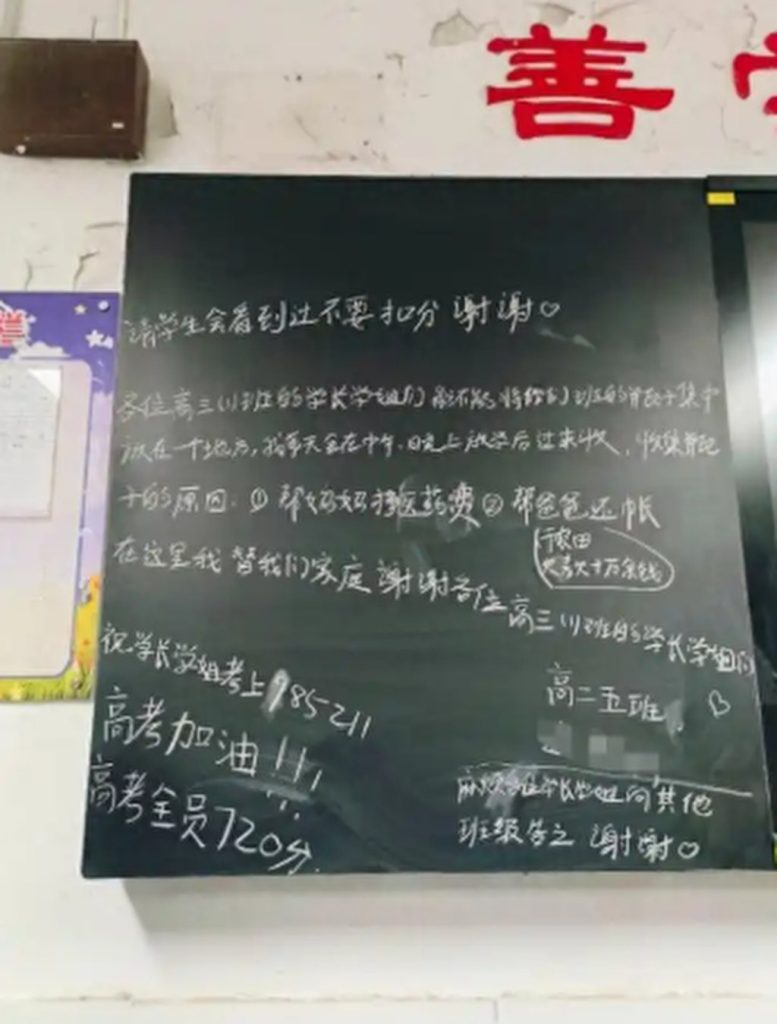 善
请学生会看到过不要扣分 谢谢♡
各位高三(1)班的学长学姐们 能不能将你们班的瓶子集中
放在一个地方,我每天会在中午、晚上放学后过来收,收集瓶
子的原因:① 帮妈妈挣医药费② 帮爸爸还帐
十万余钱
在这里我替我们家庭谢谢各位高三(1)班的学长学姐们
祝学长学姐考上985211
高二五班 ♡
高考加油!!!
高考全员720分
麻烦各位学长学姐向其他
班级告之 谢谢♡